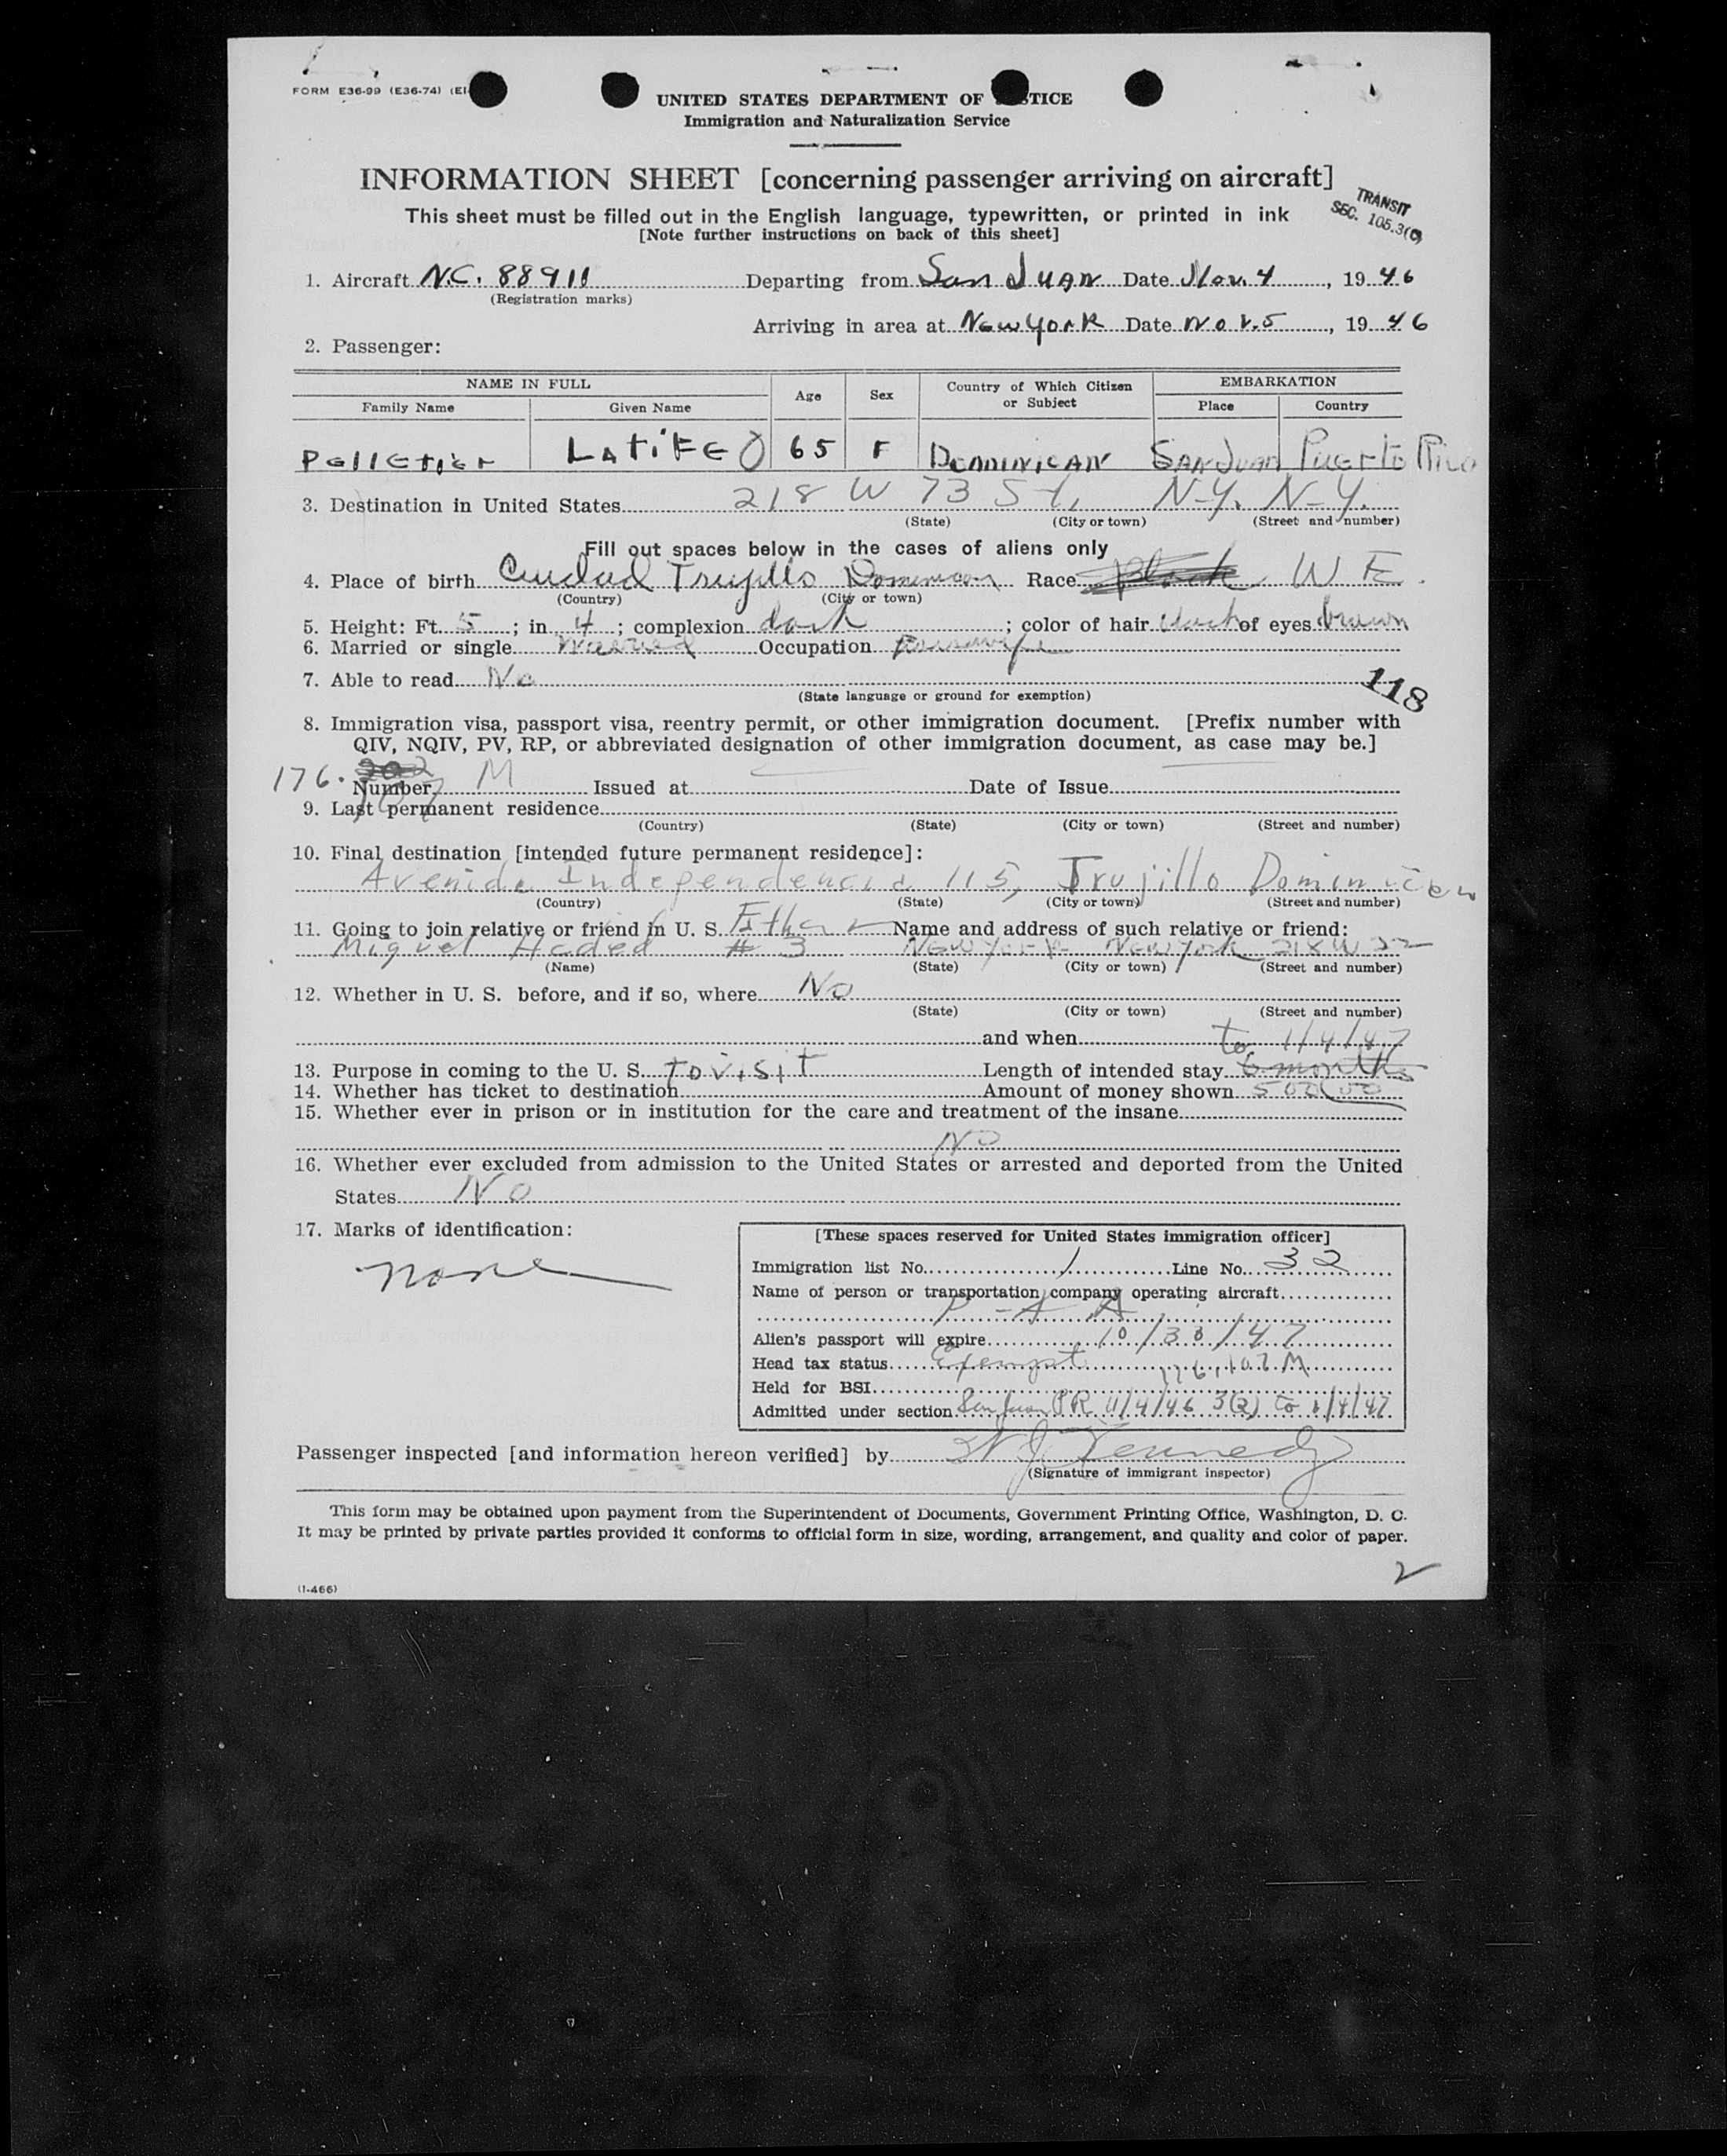 FORM E36-99 (E36-74) (EI-
UNITED STATES DEPARTMENT OF JUSTICE
Immigration and Naturalization Service
INFORMATION SHEET [concerning passenger arriving on aircraft]
TRANSIT
SEC. 105.3(C)
This sheet must be filled out in the English language, typewritten, or printed in ink
[Note further instructions on back of this sheet]
1. Aircraft N.C. 88911 Departing from San Juan Date Nov. 4, 19 46
(Registration marks)
Arriving in area at New York Date Nov. 5, 19 46
2. Passenger:
NAME IN FULL Age Sex Country of Which Citizen or Subject EMBARKATION
Family Name Given Name Place Country
Pelletier LATIFE O 65 F DOMINICAN SAN JUAN Puerto Rico
3. Destination in United States 218 W 73 St, N-Y. N-Y.
(State) (City or town) (Street and number)
Fill out spaces below in the cases of aliens only
4. Place of birth Ciudad Trujillo Dominican Race black W E.
(Country) (City or town)
5. Height: Ft. 5; in. 4; complexion dark; color of hair of eyes brown
6. Married or single Married Occupation Housewife
7. Able to read No
(State language or ground for exemption)
118
8. Immigration visa, passport visa, reentry permit, or other immigration document. [Prefix number with
QIV, NQIV, PV, RP, or abbreviated designation of other immigration document, as case may be.]
176. 202
Number 107 M Issued at Date of Issue
9. Last permanent residence
(Country) (State) (City or town) (Street and number)
10. Final destination [intended future permanent residence]:
Avenida Independencia 115, Trujillo Dominican
(Country) (State) (City or town) (Street and number)
11. Going to join relative or friend in U. S. Name and address of such relative or friend:
Miguel Haded # 3 New York New York 218 W
(Name) (State) (City or town) (Street and number)
12. Whether in U. S. before, and if so, where No
(State) (City or town) (Street and number)
and when
to 1/4/47
13. Purpose in coming to the U. S. To visit Length of intended stay 6 months
14. Whether has ticket to destination Amount of money shown 500.00
15. Whether ever in prison or in institution for the care and treatment of the insane
No
16. Whether ever excluded from admission to the United States or arrested and deported from the United
States No
17. Marks of identification:
none
[These spaces reserved for United States immigration officer]
Immigration list No. 1 Line No. 32
Name of person or transportation company operating aircraft
P-A A
Alien's passport will expire 10/30/47
Head tax status Exempt 176.107 M
Held for BSI
Admitted under section San Juan PR 11/4/46 3(2) to 1/4/47
Passenger inspected [and information hereon verified] by W J Kennedy
(Signature of immigrant inspector)
This form may be obtained upon payment from the Superintendent of Documents, Government Printing Office, Washington, D. C.
It may be printed by private parties provided it conforms to official form in size, wording, arrangement, and quality and color of paper.
2
(I-466)